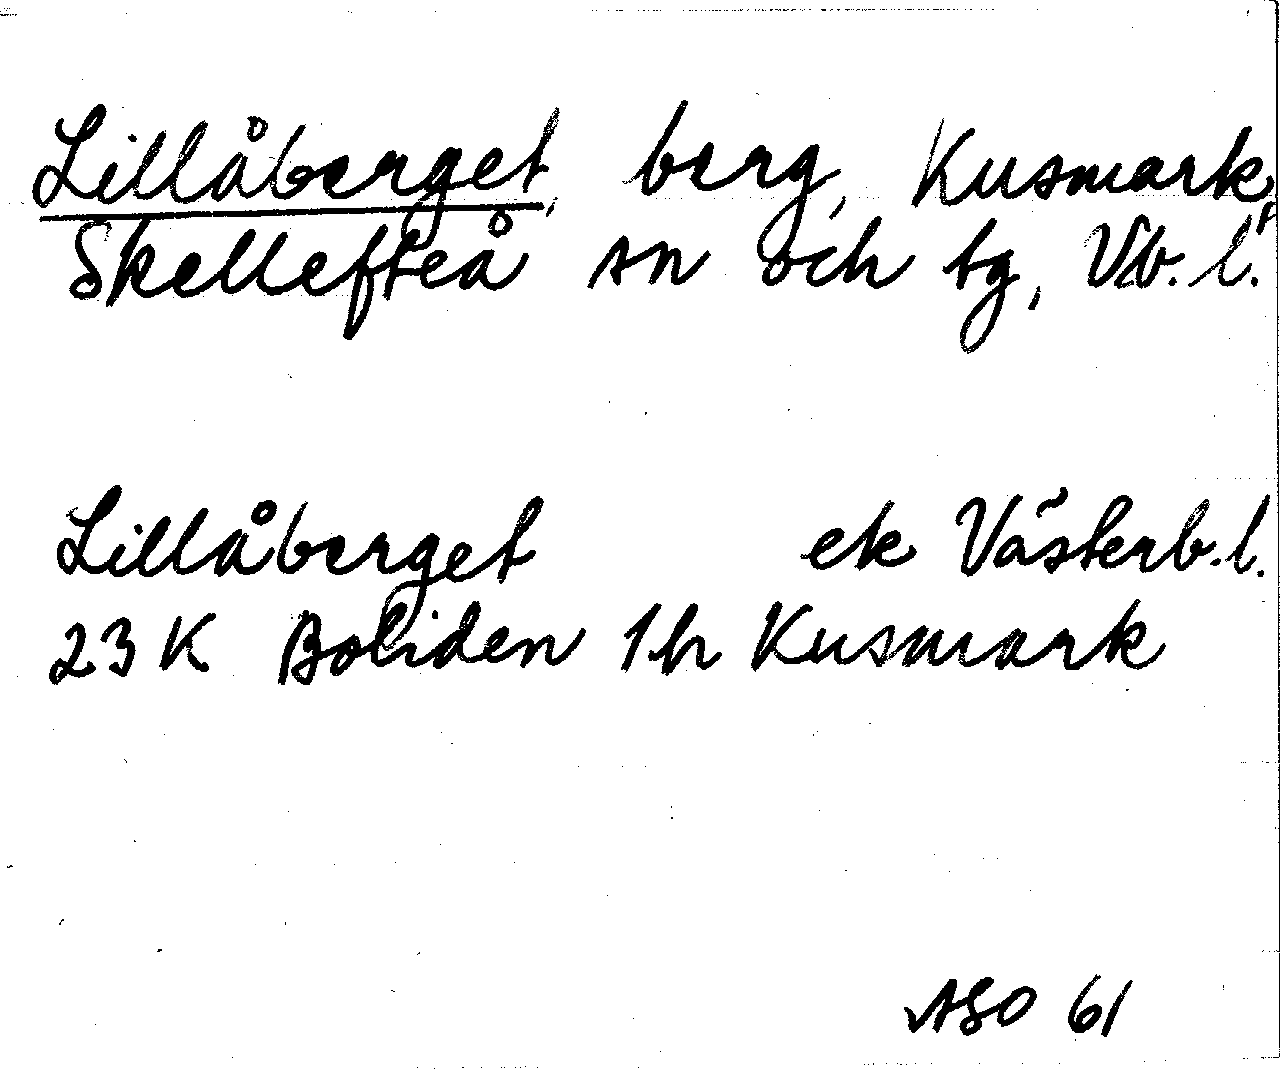 Lillåberget, berg, Kusmark,
Skellefteå sn och tg, Vb. l.
Lillåberget ek Västerb. l.
23 K Boliden 1h Kusmark
ASO 61